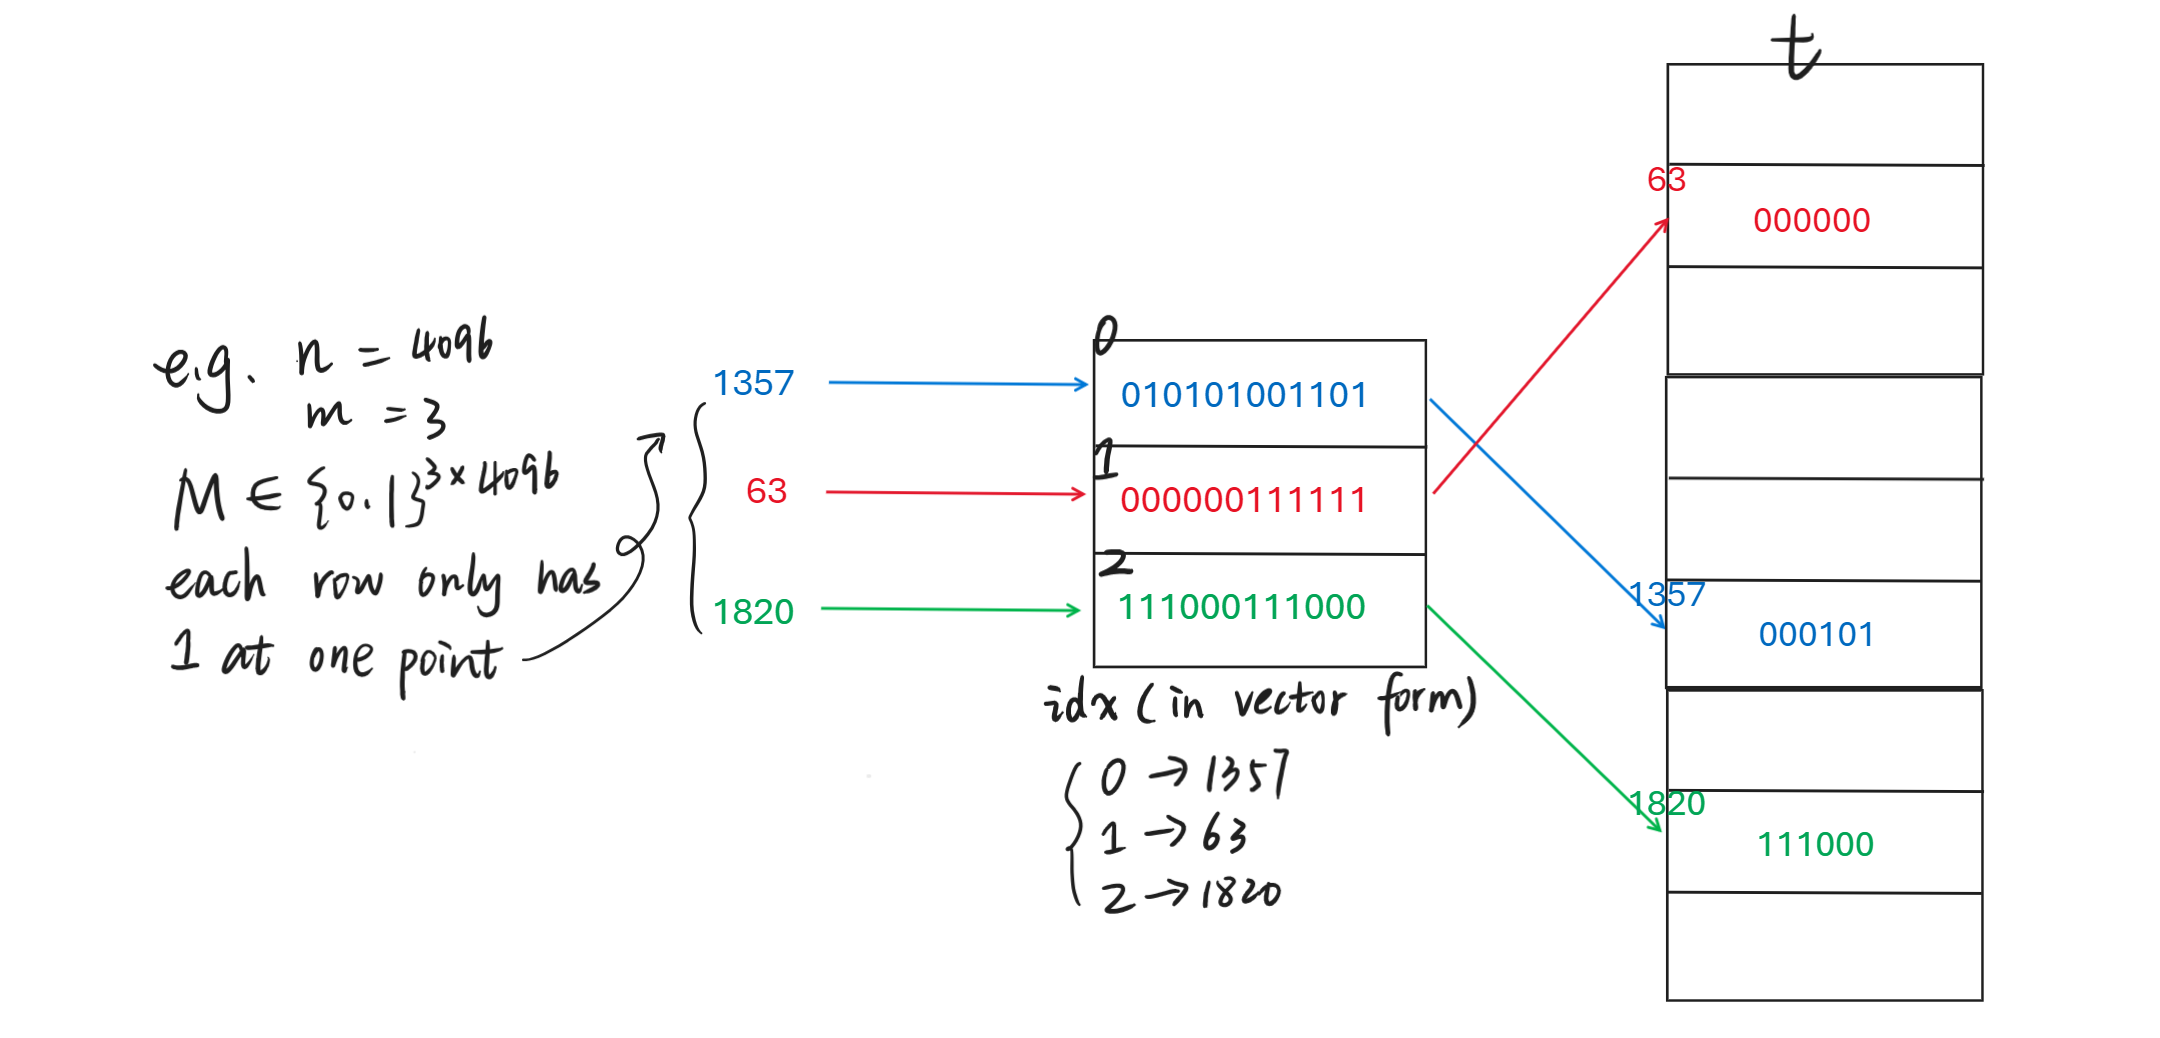 e.g. n = 4096
m = 3
M ∈ {0.1}^3×4096
each row only has
1 at one point
1357
63
1820
0
010101001101
1
000000111111
2
111000111000
idx (in vector form)
0 → 1357
1 → 63
2 → 1820
t
63
000000
1357
000101
1820
111000